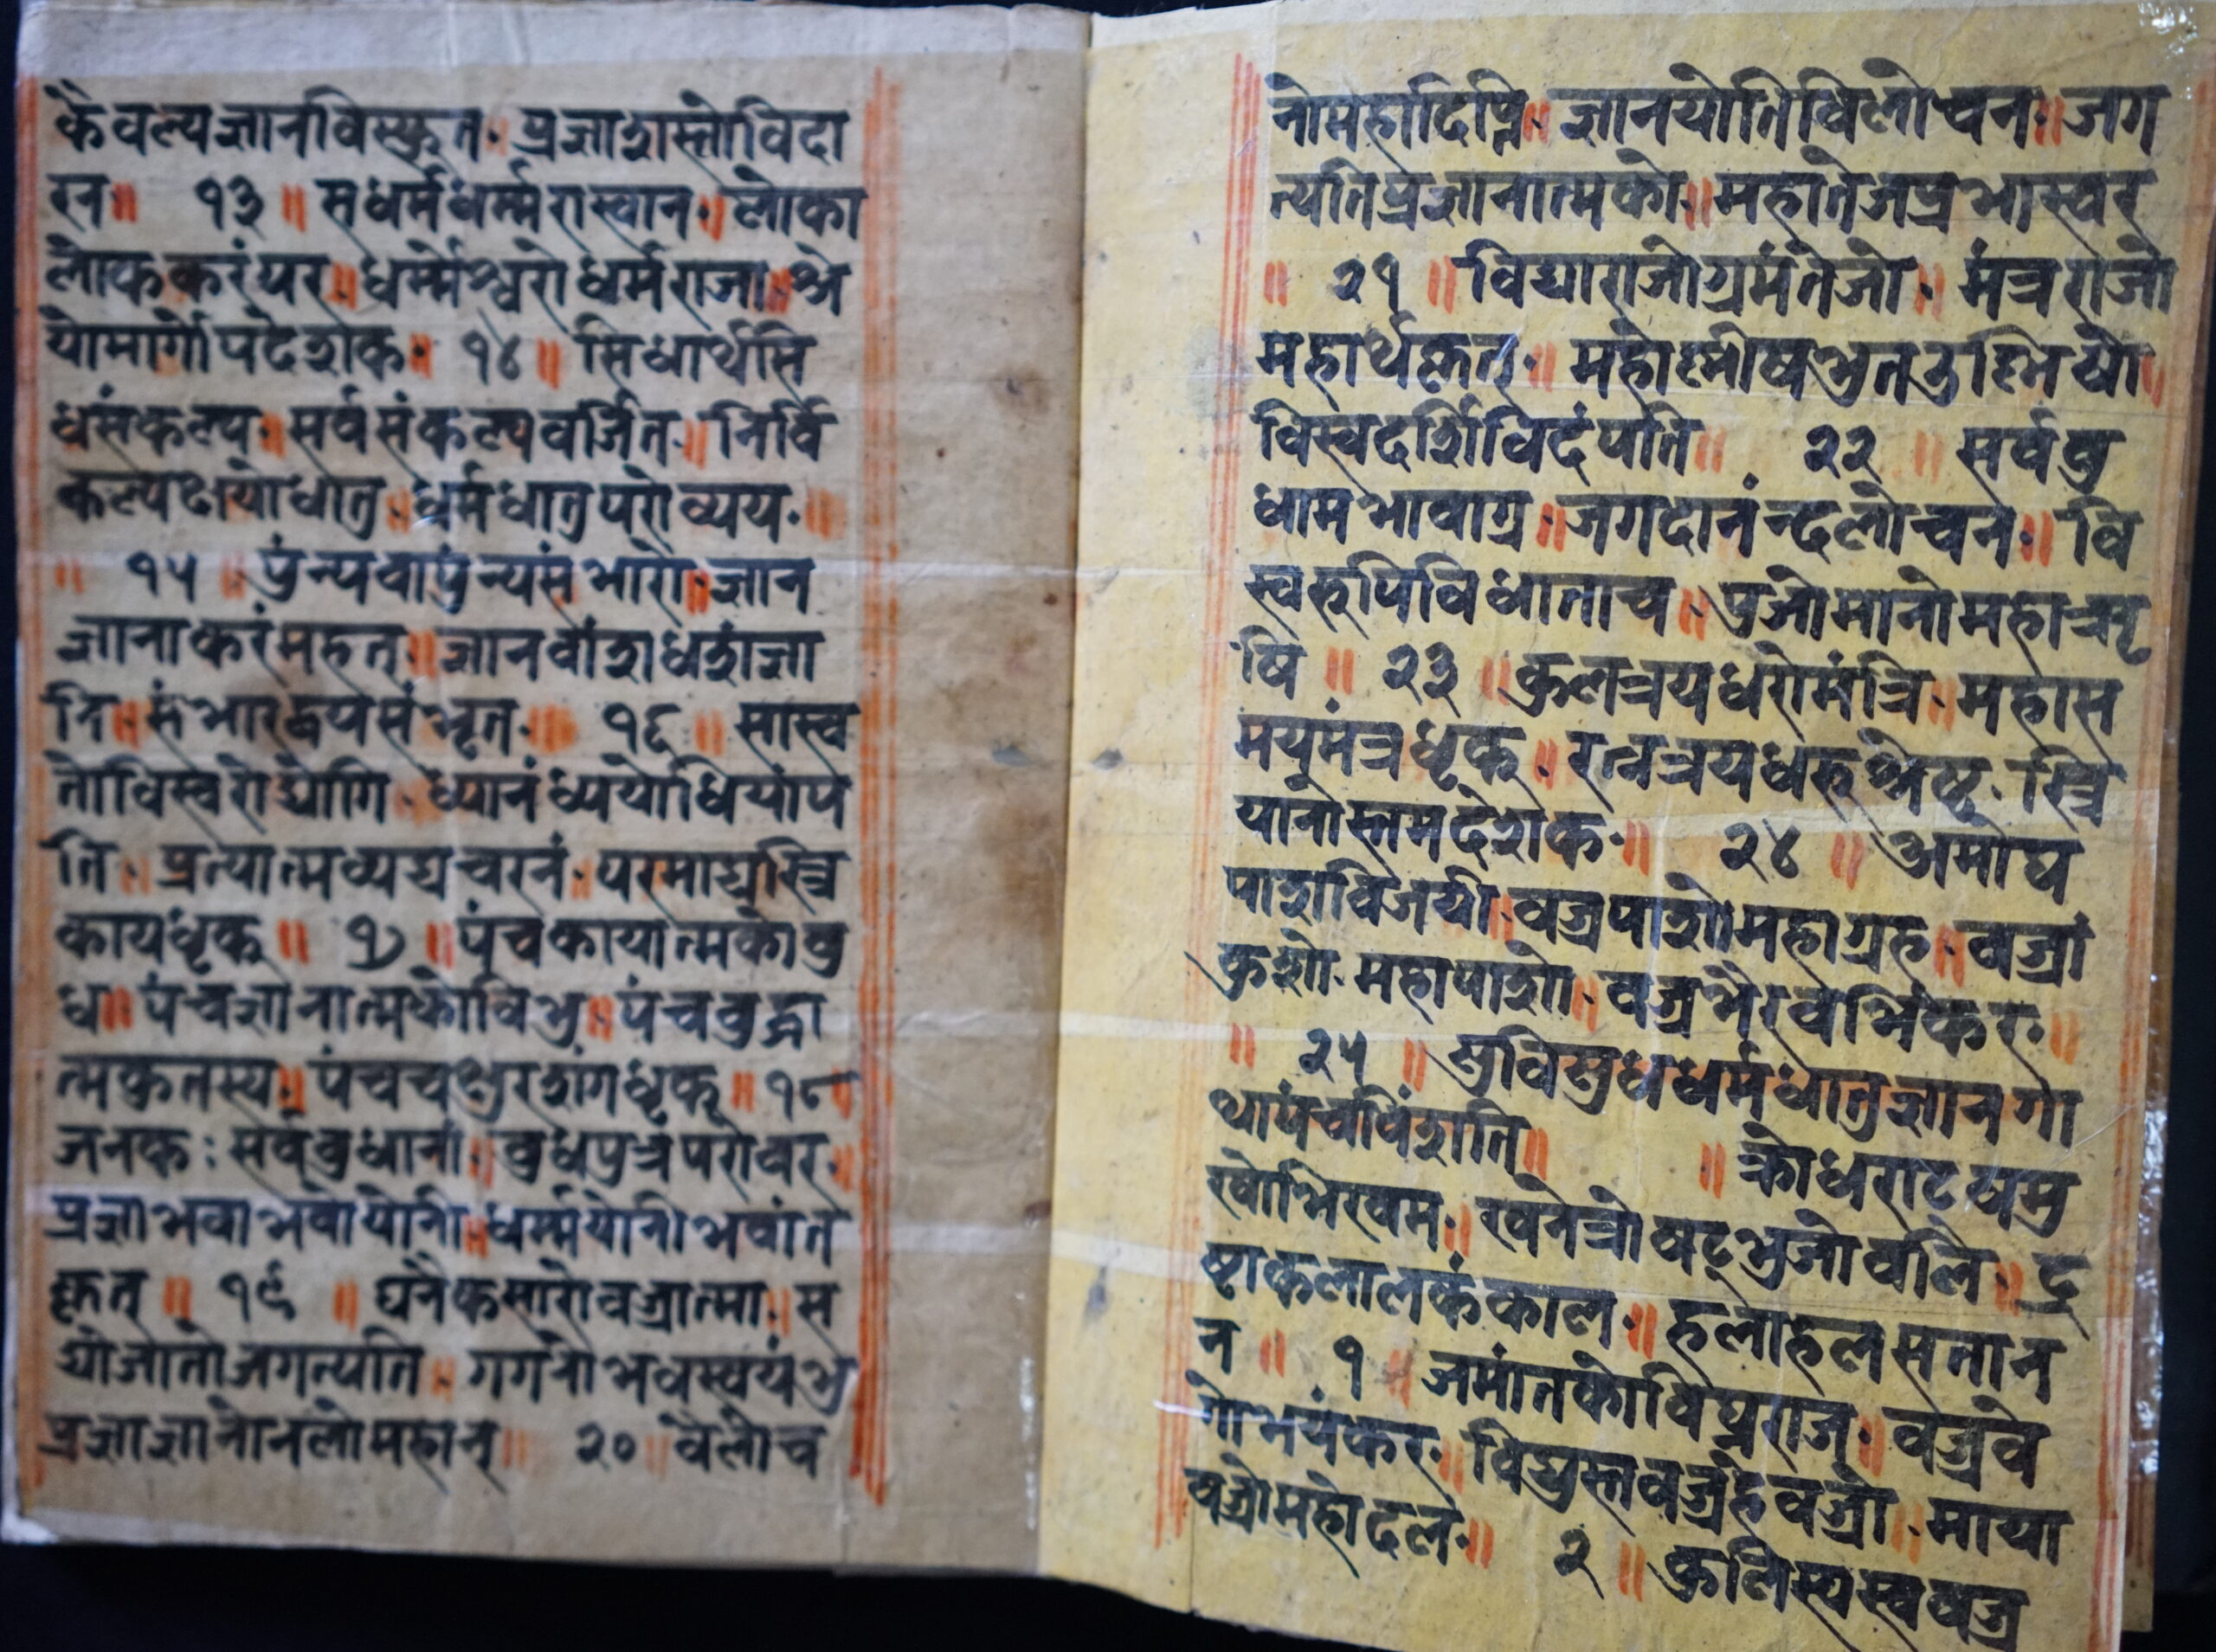 कैवल्यज्ञानविस्फुत॥ प्रज्ञाशस्तोविदा
रन॥ १३ ॥ सधर्मधर्म्मरास्वान॥ लोका
लोककरंपर॥ धर्म्मेश्वरोधर्मराजा॥ श्रे
योमार्गोपदेशक॥ १४ ॥ सिधार्थसि
धसंकल्प॥ सर्वसंकल्पवर्जित॥ निर्वि
कल्पक्षयोधातु॥ धर्मधातुपरोव्यय॥
॥ १५ ॥ पुंन्यवापुंन्यसंभारो॥ ज्ञान
ज्ञानाकरंमहत्॥ ज्ञानवांशधशंज्ञा
नि॥ संभारद्वयसंभृत॥ १६ ॥ सास्व
तोविस्वरोद्योगि॥ ध्यानंध्ययोधियांप
ति॥ प्रत्यात्मव्यद्यचरनं॥ परमाद्यस्त्रि
कायधृक् ॥ १७ ॥ पंचकायात्मकोवु
ध॥ पंचज्ञानात्मकोविभु॥ पंचवुद्धा
त्मकुतस्य॥ पंचचक्षुरशंगधृक् ॥ १८
जनक: सर्ववुधानां॥ वुधपुत्रपरोवर॥
प्रज्ञाभवोभवोयोनी॥ धर्म्मयोनीभवांत
कृत् ॥ १९ ॥ घनैकसारोवज्रात्मा॥ स
द्योजातोजगत्पति॥ गगनोभवस्वयंभु
प्रज्ञाज्ञानोनलोमहान् ॥ २० ॥ वैलोच
नोमहादिप्ति॥ ज्ञानयोतिविलोचन॥ जग
त्पतिप्रज्ञानात्मको॥ महातेजप्रभास्वर
॥ २१ ॥ विद्याराजोग्रमंतेजो॥ मंत्रराजो
महार्थकृत्॥ महोष्णीषभुतउष्णियो॥
विस्वदर्शिविदंपति॥ २२ ॥ सर्ववु
धामभावाग्र॥ जगदानंन्दलोचन॥ वि
स्वरुपिविधाताच॥ पुजोमानोमहाऋ
षि ॥ २३ ॥ कुलत्रयधरोमंत्रि॥ महास
मयुमंत्रधृक्॥ रत्नत्रयधरुश्रेष्ठ॥ स्त्रि
यानोस्तमदेशक॥ २४ ॥ अमोघ
पाशविजयी॥ वज्रपाशोमहाग्रह॥ वज्रां
कुशो॥ महापाशो॥ वज्रभैरवभिंकर॥
॥ २५ ॥ सुविसुधधर्मधातुज्ञानगा
थापंचविंशति॥ ॥ क्रोधराटषमु
खोभिखम॥ खनेत्रोषट्भुजोवलि॥ द्र
ष्टाकलालकंकाल॥ हलाहलसतान
न ॥ १ ॥ जमांतकोविघ्नराज्॥ वज्रवे
गोभयंकर॥ विद्युस्तवज्रंहवज्रो॥ माया
वज्रोमहोदल॥ २ ॥ कुलिस्यस्ववज्र